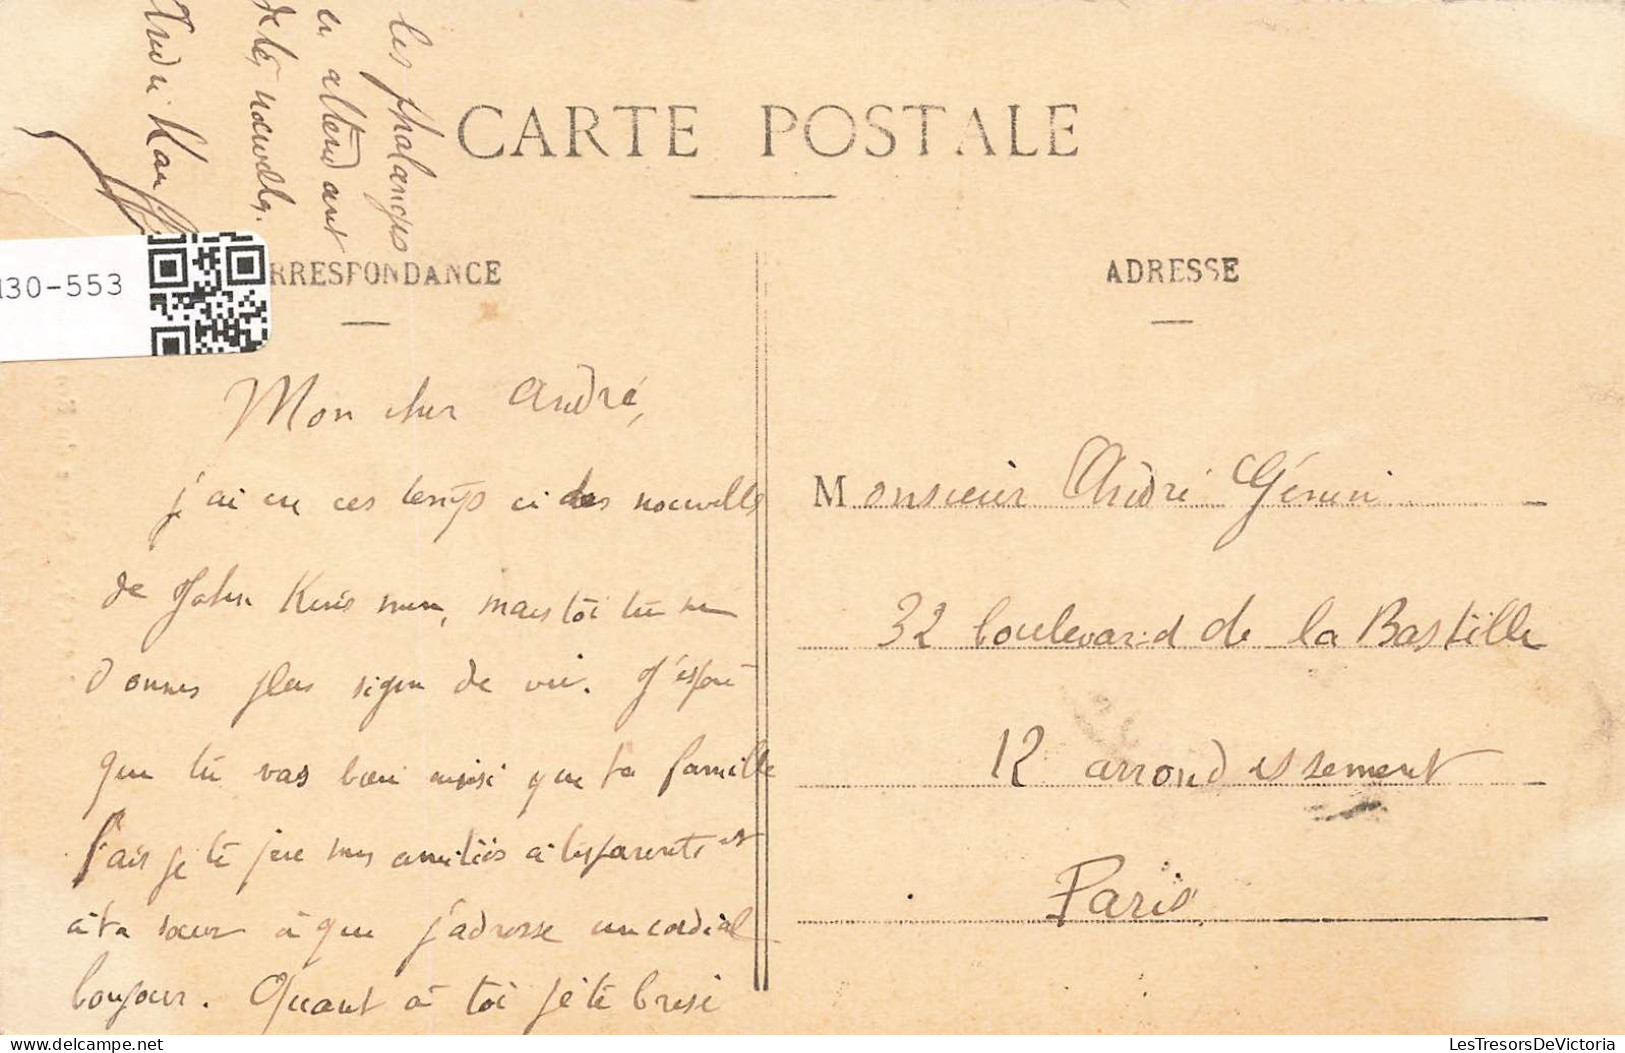 CARTE POSTALE
RRESPONDANCE
ADRESSE
130-553
Mon cher André,
j'ai eu ces temps ci des nouvelles
de John mais toi tu ne
donnes plus signe de vie. J'espère
que tu vas bien ainsi que ta famille
Fais je te prie mes amitiés à tes parents et
à ta soeur à qui j'adresse un cordial
bonjour. Quant à toi je te brise
les phalanges
en attendant
de tes nouvelles.
André
Monsieur André Génin
32 boulevard de la Bastille
12 arrondissement
Paris
LesTresorsDeVictoria.com